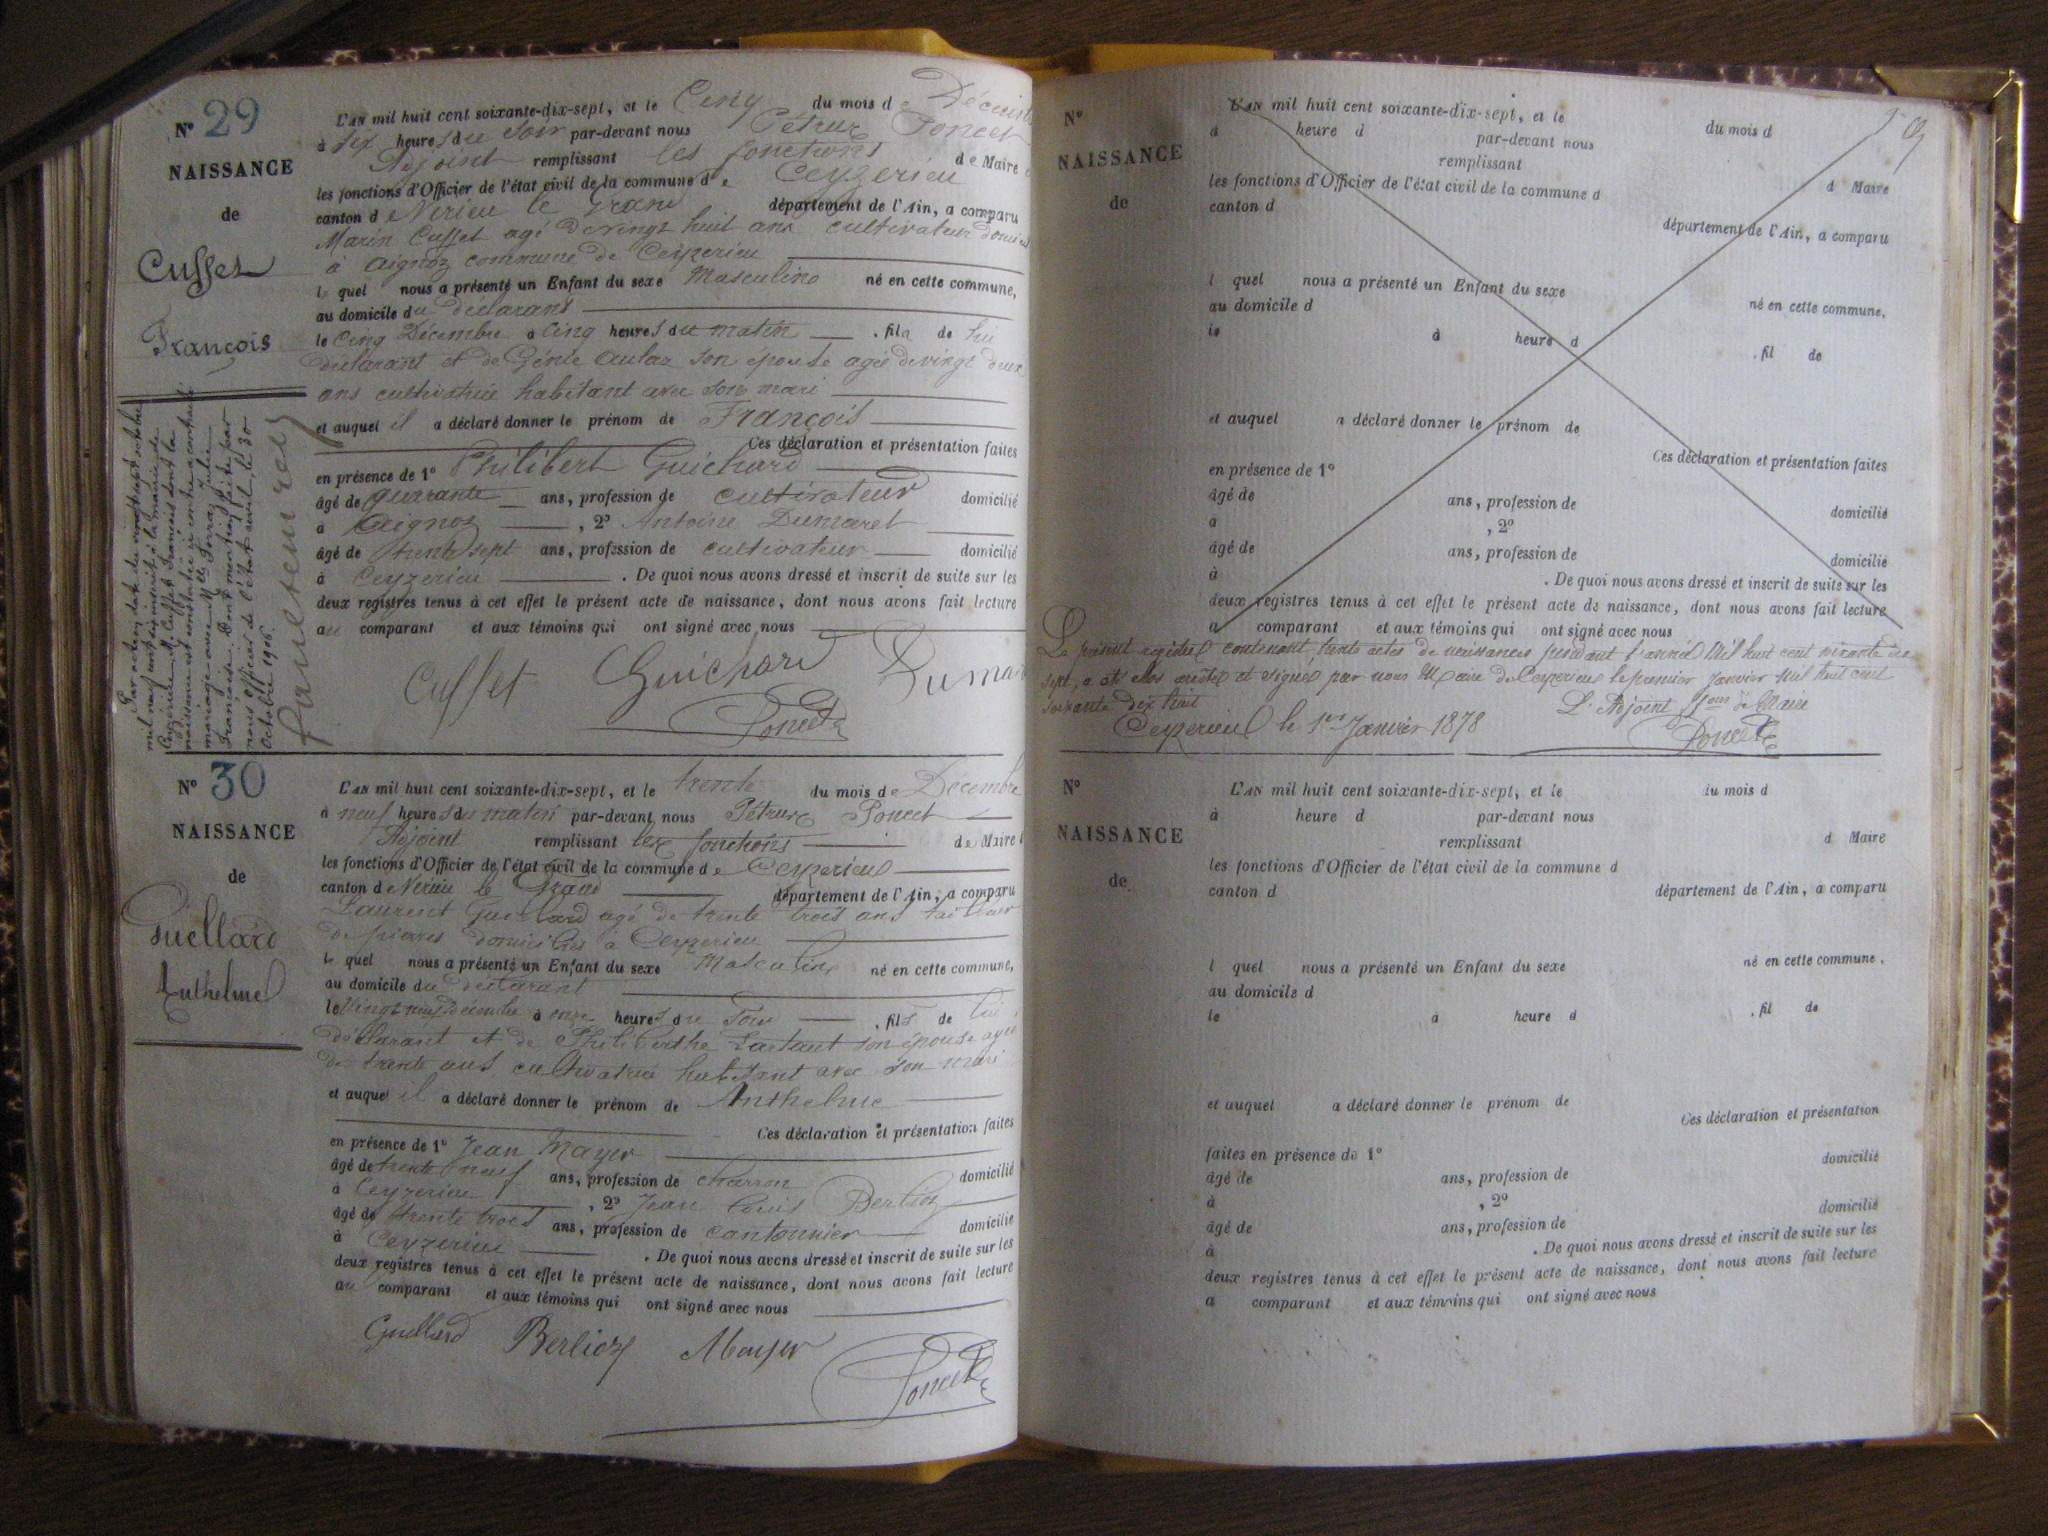 Nº 29
NAISSANCE
de
Cusset
François
L'AN mil huit cent soixante-dix-sept, et le Cinq du mois de Décembre
à six heures du soir par-devant nous Pétrus Poncet
Adjoint remplissant les fonctions de Maire
les fonctions d'Officier de l'état civil de la commune de Ceyzerieu
canton de Virieu le Grand département de l'Ain, a comparu
Marin Cusset agé de vingt huit ans cultivateur domicilié
à Aignoz commune de Ceyzerieu
lequel nous a présenté un Enfant du sexe Masculin né en cette commune,
au domicile du déclarant
le Cinq Décembre à Cinq heures du matin . fils de lui
déclarant et de son épouse agée de vingt deux
ans cultivatrice habitant avec son mari
et auquel il a déclaré donner le prénom de François
Ces déclaration et présentation faites
en présence de 1º Philibert Guichard
âgé de quarante ans, profession de cultivateur domicilié
à Aignoz , 2º Antoine Dumarel
âgé de trente sept ans, profession de cultivateur domicilié
à Ceyzerieu . De quoi nous avons dressé et inscrit de suite sur les
deux registres tenus à cet effet le présent acte de naissance, dont nous avons fait lecture
au comparant et aux témoins qui ont signé avec nous
Cusset Guichard Dumar
Poncet
Par acte en date du vingt sept octobre
mil neuf cent six inscrit à la mairie de
Ceyzerieu, M. Cusset François dont la
naissance est constatée ci contre a contracté
mariage avec Mlle Julie
Françoise. Dont mention faite par
nous officier de l'état civil, le 30
Octobre 1906.
Nº 30
NAISSANCE
de
Guellard
Anthelme
L'AN mil huit cent soixante-dix-sept, et le trente du mois de Décembre
à neuf heures du matin par-devant nous Pétrus Poncet
Adjoint remplissant les fonctions de Maire
les fonctions d'Officier de l'état civil de la commune de Ceyzerieu
canton de Virieu le Grand département de l'Ain, a comparu
Laurent Guellard agé de trente trois ans tailleur
de pierres domicilié à Ceyzerieu
lequel nous a présenté un Enfant du sexe Masculin né en cette commune,
au domicile du déclarant
le Vingt neuf Décembre à onze heures du soir . fils de lui
déclarant et de Philiberthe son épouse agée
de trente ans cultivatrice habitant avec son mari
et auquel il a déclaré donner le prénom de Anthelme
Ces déclaration et présentation faites
en présence de 1º Jean Mayer
âgé de trente neuf ans, profession de charron domicilié
à Ceyzerieu , 2º Jean Louis Berlioz
âgé de trente trois ans, profession de cantonnier domicilié
à Ceyzerieu . De quoi nous avons dressé et inscrit de suite sur les
deux registres tenus à cet effet le présent acte de naissance, dont nous avons fait lecture
au comparant et aux témoins qui ont signé avec nous
Guellard Berlioz Mayer
Poncet
Nº
NAISSANCE
de
L'AN mil huit cent soixante-dix-sept, et le du mois d
à heure d par-devant nous
remplissant d Maire
les fonctions d'Officier de l'état civil de la commune d
canton d département de l'Ain, a comparu
l quel nous a présenté un Enfant du sexe né en cette commune,
au domicile d
le à heure d . fil de
et auquel a déclaré donner le prénom de
Ces déclaration et présentation faites
en présence de 1º
âgé de ans, profession de domicilié
à , 2º
âgé de ans, profession de domicilié
à . De quoi nous avons dressé et inscrit de suite sur les
deux registres tenus à cet effet le présent acte de naissance, dont nous avons fait lecture
a comparant et aux témoins qui ont signé avec nous
Le présent registre contenant trente actes de naissances pendant l'année Mil huit cent soixante dix
sept, a été clos arrêté et signé par nous Maire de Ceyzerieu le premier Janvier Mil huit cent
soixante dix huit
Ceyzerieu le 1er Janvier 1878
L'Adjoint ffons de Maire
Poncet
Nº
NAISSANCE
de
L'AN mil huit cent soixante-dix-sept, et le du mois d
à heure d par-devant nous
remplissant d Maire
les fonctions d'Officier de l'état civil de la commune d
canton d département de l'Ain, a comparu
l quel nous a présenté un Enfant du sexe né en cette commune,
au domicile d
le à heure d . fil de
et auquel a déclaré donner le prénom de
Ces déclaration et présentation
faites en présence de 1º domicilié
âgé de ans, profession de
à , 2º domicilié
âgé de ans, profession de
à . De quoi nous avons dressé et inscrit de suite sur les
deux registres tenus à cet effet le présent acte de naissance, dont nous avons fait lecture
a comparant et aux témoins qui ont signé avec nous